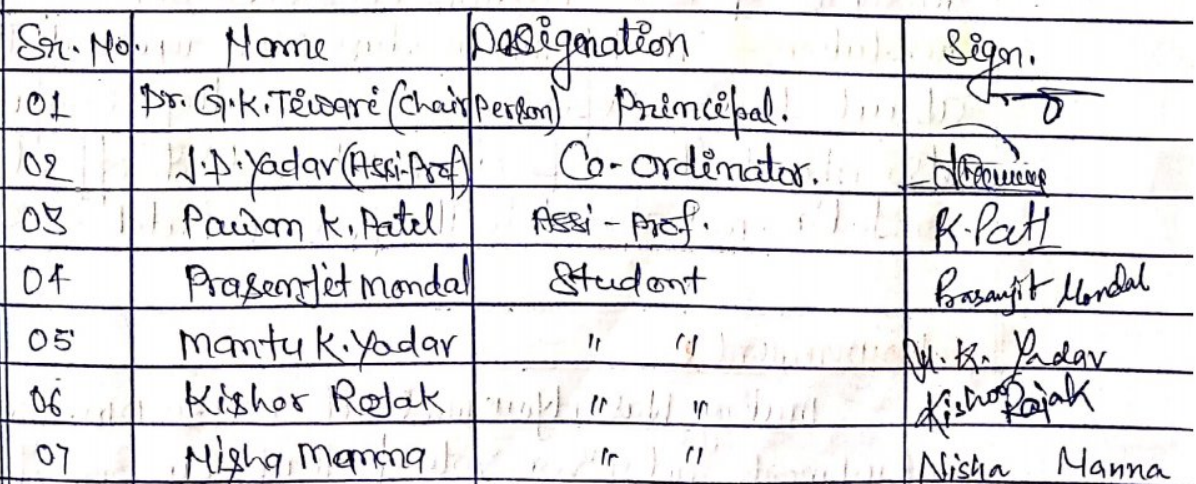 Sr. No. Name Designation Sign.
01 Dr. G.K. Tiwari (Chair Person) Principal.
02 J.D. Yadav (Assi. Prof) Co-ordinator.
03 Pawan K. Patel Assi - Prof. K. Patl
04 Prasenjit Mondal Student Prasanjit Mondal
05 Mantu K. Yadav " " M. K. Yadav
06 Kishor Rajak " " Kishor Rajak
07 Nisha Manna " " Nisha Manna